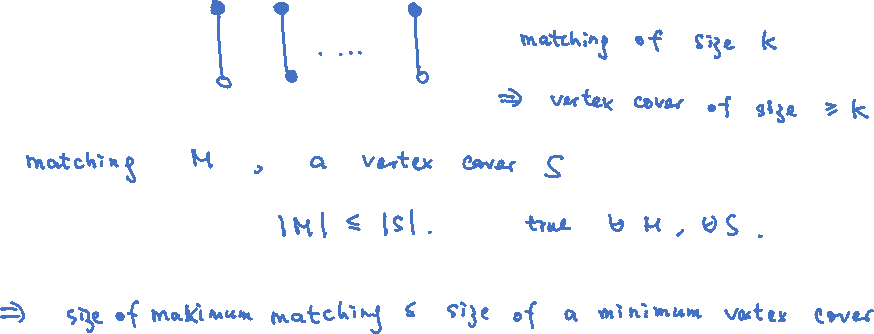 matching of size k
⇒ vertex cover of size ≥ k
matching M , a vertex cover S
|M| ≤ |S|. true ∀ M, ∀ S.
⇒ size of maximum matching ≤ size of a minimum vertex cover